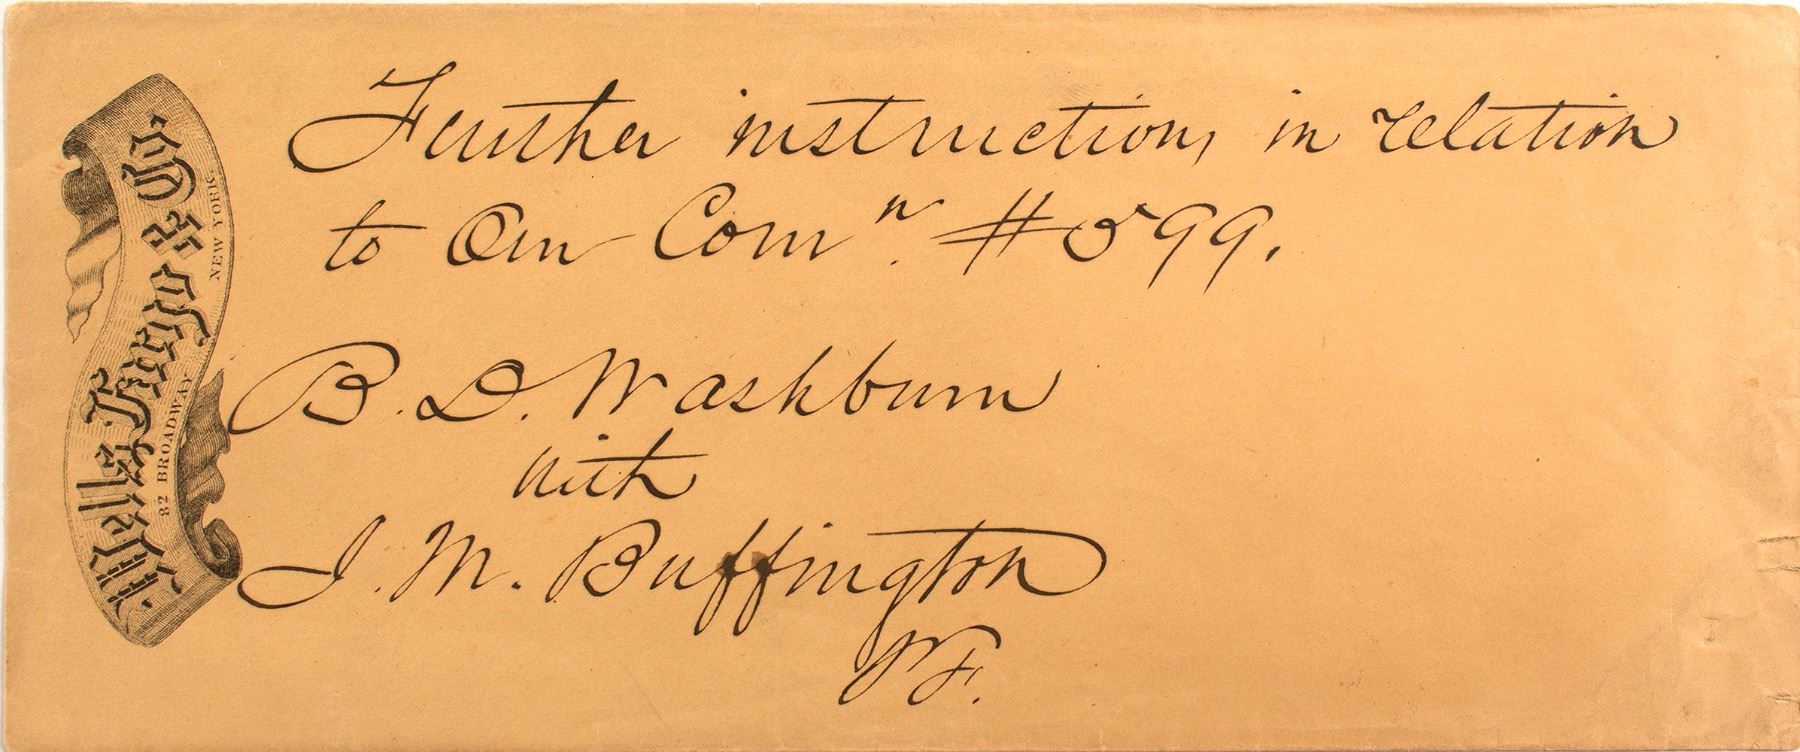 Wells Fargo & Co.
82 BROADWAY NEW YORK.
Further instructions in relation
to Our Comn. #599.
B. D. Washburn
with
J. M. Buffington
W F.